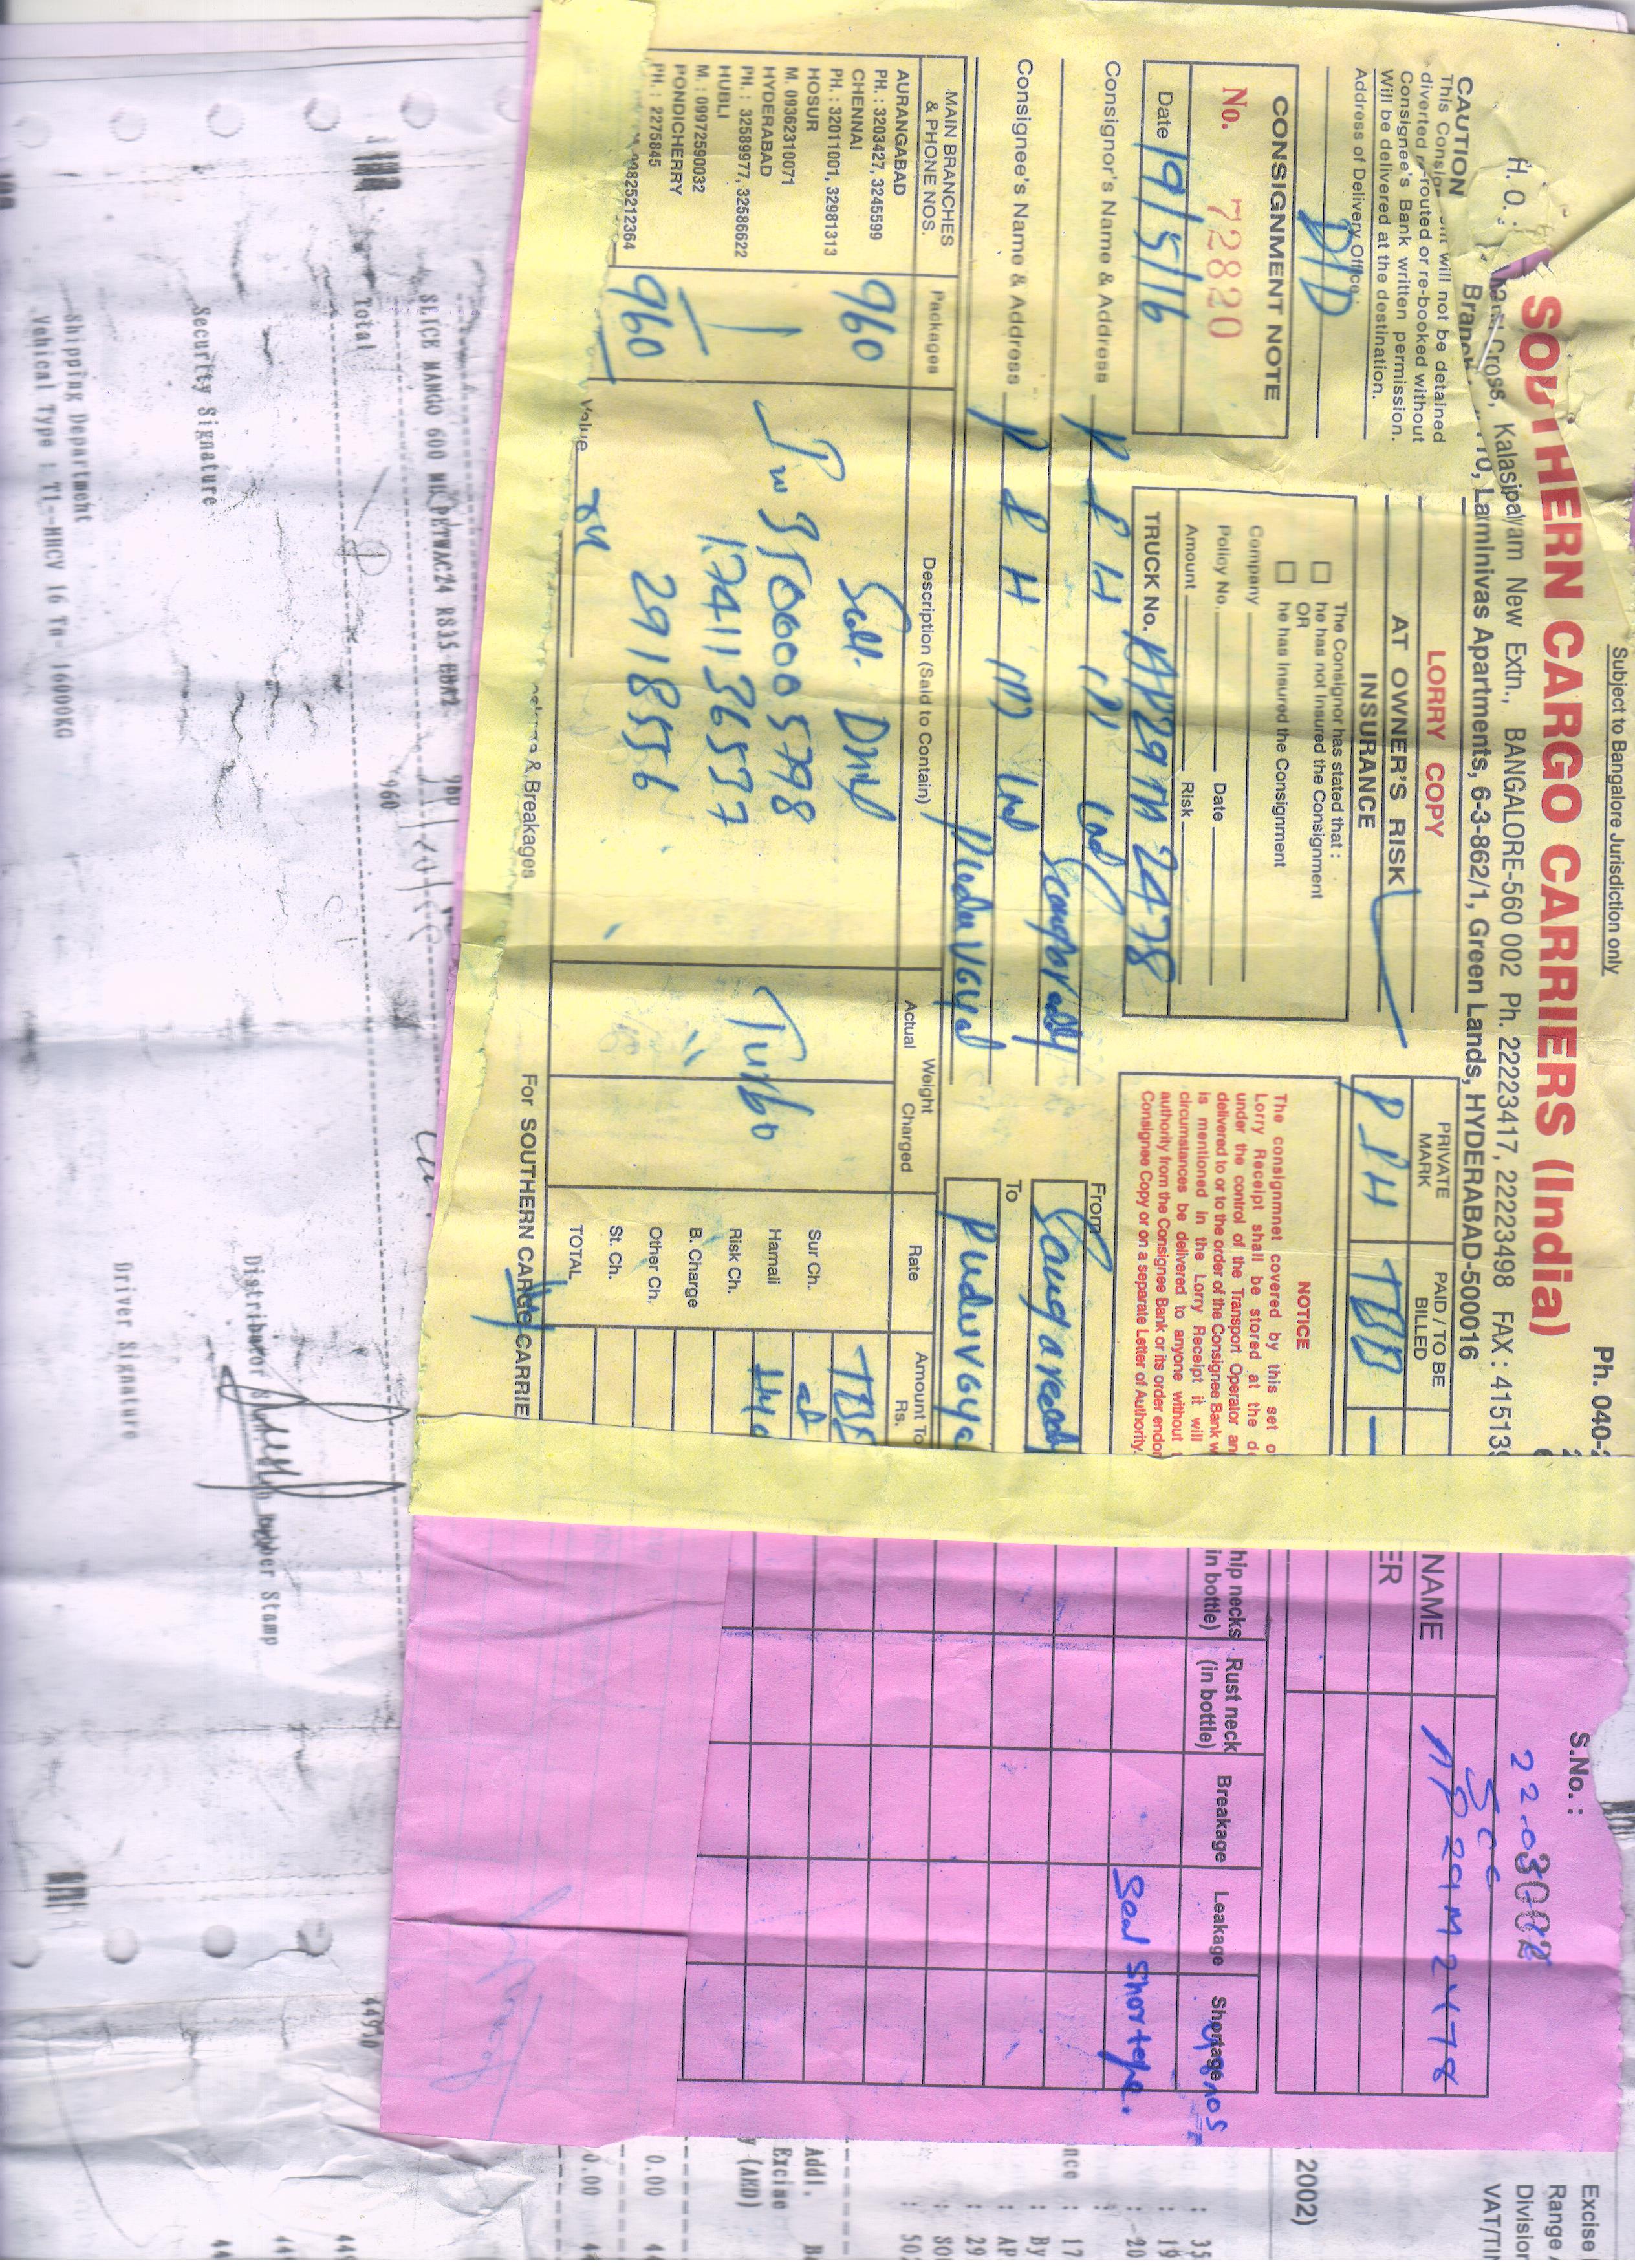 Subject to Bangalore Jurisdiction only
Ph. 040-2
SOUTHERN CARGO CARRIERS (India)
H. O. : Cross, Kalasipalyam New Extn., BANGALORE-560 002 Ph. 22223417, 22223498 FAX : 415139
Branch 10, Laxminivas Apartments, 6-3-862/1, Green Lands, HYDERABAD-500016
CAUTION
This Consignment will not be detained
diverted re-routed or re-booked without
Consignee's Bank written permission.
Will be delivered at the destination.
Address of Delivery Office
D/D
CONSIGNMENT NOTE
No. 72820
Date 19/5/16
LORRY COPY
AT OWNER'S RISK
INSURANCE
The Consignor has stated that :
he has not Insured the Consignment
OR
he has Insured the Consignment
Company
Policy No. Date
Amount Risk
TRUCK No. AP29TA 2478
PRIVATE MARK
PAID / TO BE BILLED
P I H TBB —
NOTICE
The consignmnet covered by this set o
Lorry Receipt shall be stored at the d
under the control of the Transport Operator an
delivered to or to the order of the Consignee Bank w
is mentioned in the Lorry Receipt it will
circumstances be delivered to anyone without
authority from the Consignee Bank or its order endor
Consignee Copy or on a separate Letter of Authority.
Consignor's Name & Address P I H (P) Ltd
Sangareddy
Consignee's Name & Address P I H (P) Ltd
Puduvoyal
From
Sangareddy
To
Puduvoya
MAIN BRANCHES
& PHONE NOS.
Packages
Description (Said to Contain)
Weight
Actual Charged
Rate
Amount To
Rs.
AURANGABAD
PH. : 3203427, 3245599
CHENNAI
PH. : 32011001, 32981313
HOSUR
M. 09362310071
HYDERABAD
PH. : 32589977, 32586622
HUBLI
M. : 09972590032
PONDICHERRY
PH. : 2275845
09825212364
960
960
Inv 3500005798
1741136537
2918556
Value
Turbo
TBB
at
Hyd
Sur Ch.
Hamali
Risk Ch.
B. Charge
Other Ch.
St. Ch.
TOTAL
& Breakages
For SOUTHERN CARGO CARRIE
S.No. :
3062
SCC
NAME AP29M2478
ER
hip necks
in bottle)
Rust neck
(in bottle)
Breakage
Leakage
Shortage
48nos
Seal Shortage.
Excise
Range
Division
VAT/TI
2002)
: 35
: 19
: 20
nce : 17
: By
: AP
: 29
: SO
: 50
Addl.
Excise
y (AED)
0.00 44
0.00 44
SLICE MANGO 600 ML PETWAC24 RS35 EBA2 960
Total 960
44930
Distributor Rubber Stamp
Security Signature
Driver Signature
Shipping Department
Vehical Type : T1--MHCV 16 Tn- 16000KG